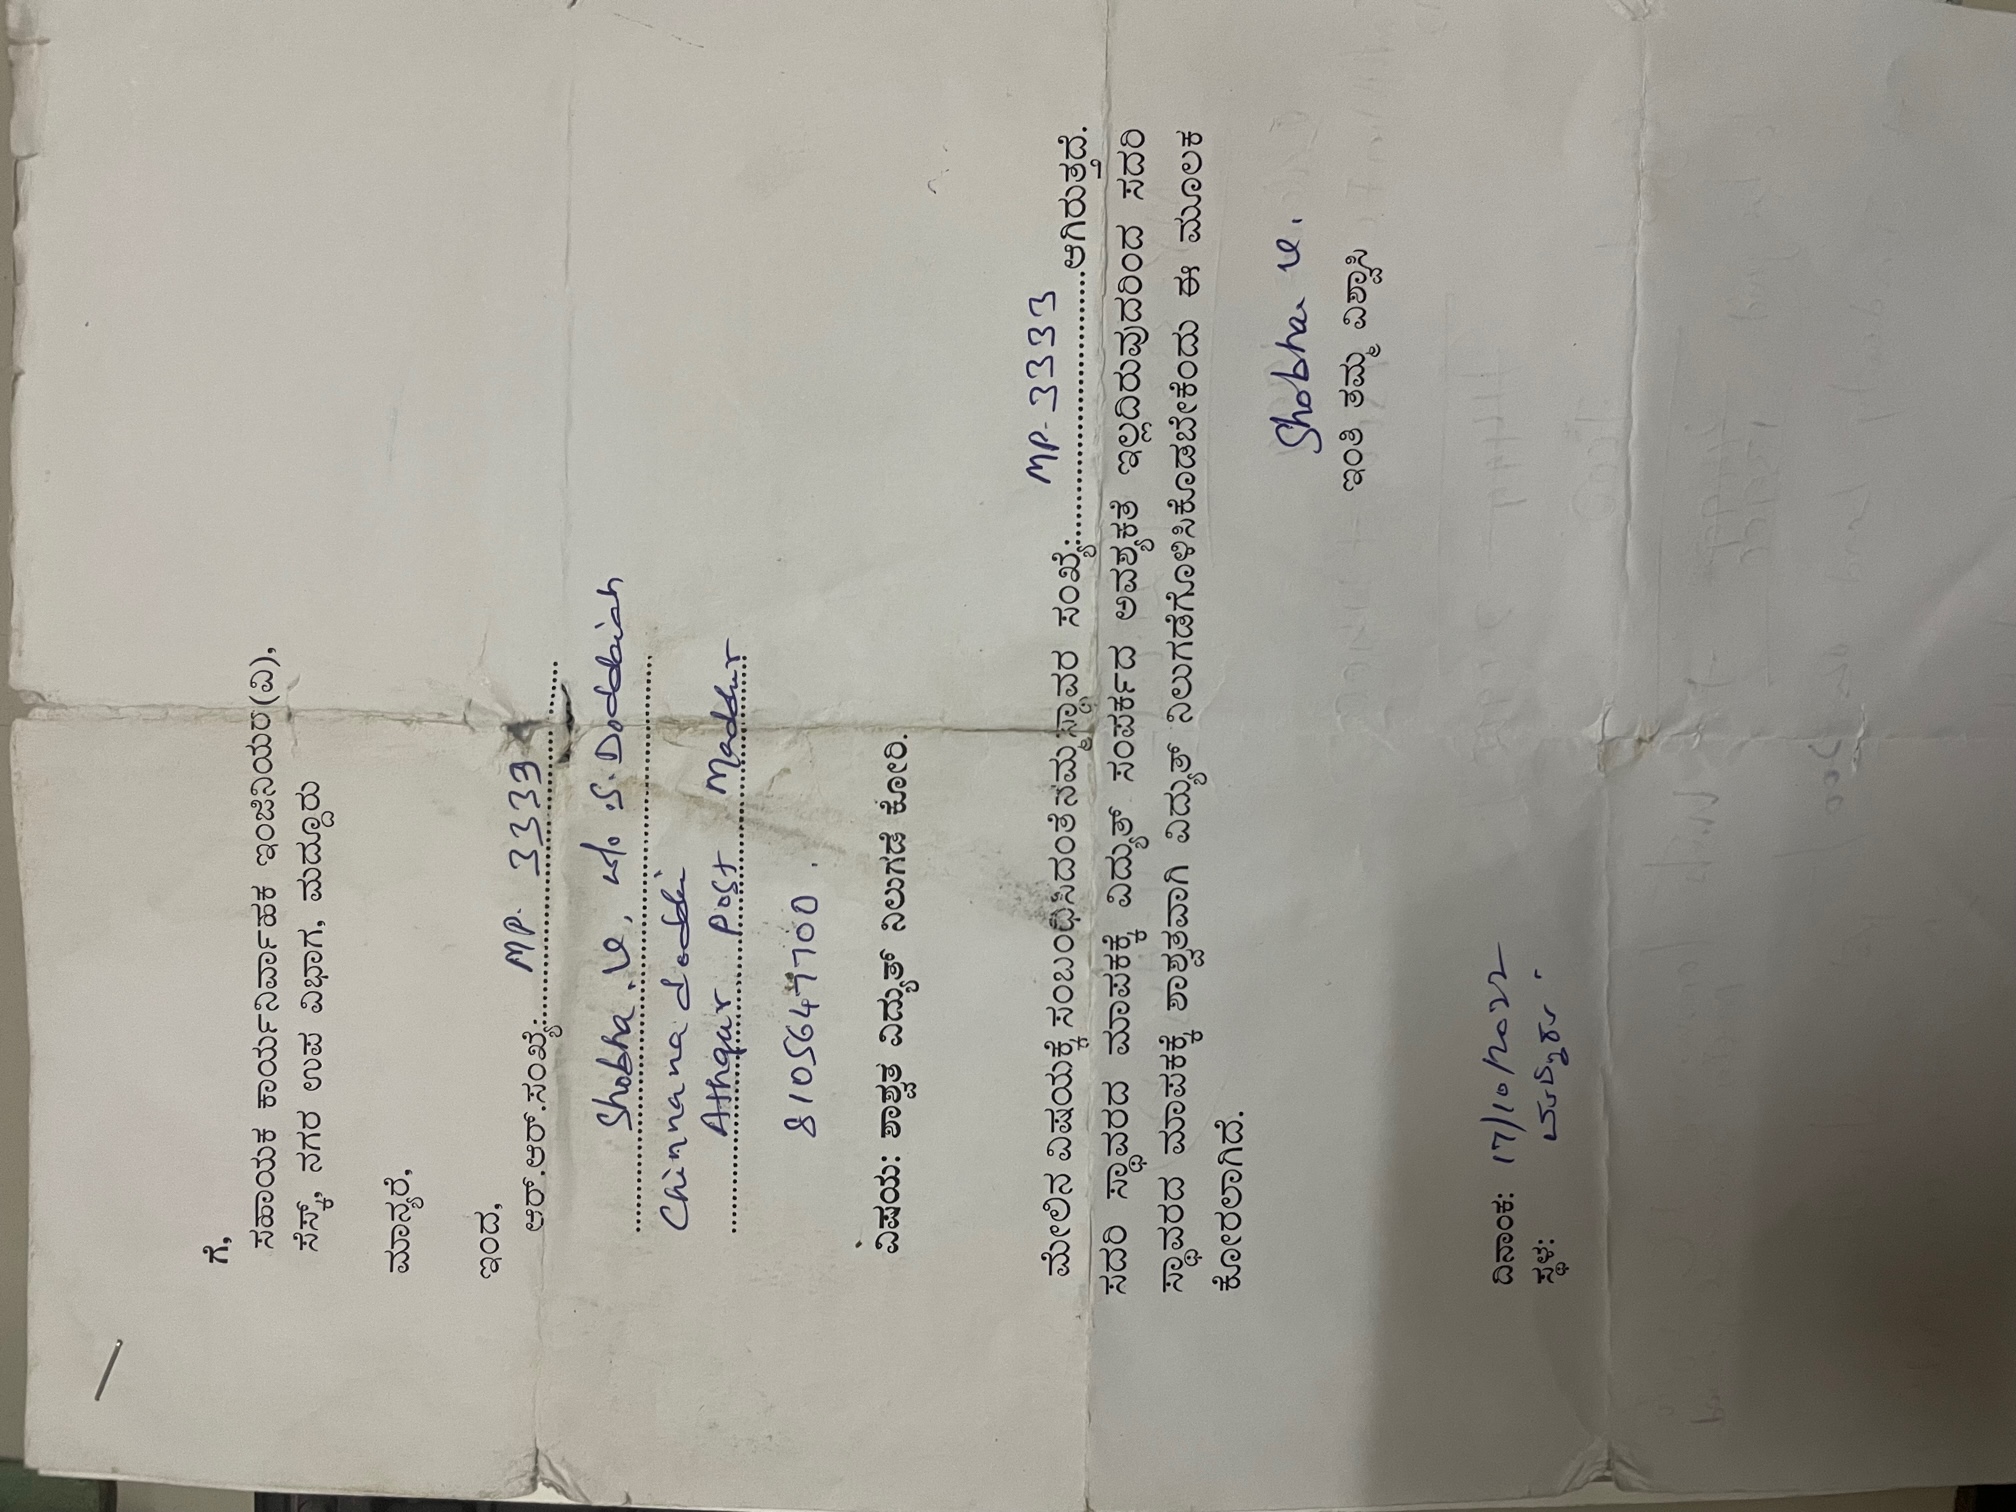 ಗೆ,
ಸಹಾಯಕ ಕಾರ್ಯನಿರ್ವಾಹಕ ಇಂಜಿನಿಯರ(ವಿ),
ಸೆಸ್ಕ್, ನಗರ ಉಪ ವಿಭಾಗ, ಮದ್ದೂರು
ಮಾನ್ಯರೆ,
ಇಂದ,
ಆರ್.ಆರ್.ಸಂಖ್ಯೆ:..........MP- 3333..........
Shobha.V, w/o S.Doddaiah
Chinnanadoddi
Athgur Post Maddur
8105647700.
ವಿಷಯ: ಶಾಶ್ವತ ವಿದ್ಯುತ್ ನಿಲುಗಡೆ ಕೋರಿ.
ಮೇಲಿನ ವಿಷಯಕ್ಕೆ ಸಂಬಂಧಿಸಿದಂತೆ ನಮ್ಮ ಸ್ಥಾವರ ಸಂಖ್ಯೆ:..........MP-3333..........ಆಗಿರುತ್ತದೆ.
ಸದರಿ ಸ್ಥಾವರದ ಮಾಪಕಕ್ಕೆ ವಿದ್ಯುತ್ ಸಂಪರ್ಕದ ಅವಶ್ಯಕತೆ ಇಲ್ಲದಿರುವುದರಿಂದ ಸದರಿ
ಸ್ಥಾವರದ ಮಾಪಕಕ್ಕೆ ಶಾಶ್ವತವಾಗಿ ವಿದ್ಯುತ್ ನಿಲುಗಡೆಗೊಳಿಸಿಕೊಡಬೇಕೆಂದು ಈ ಮೂಲಕ
ಕೋರಲಾಗಿದೆ.
Shobha V.
ಇಂತಿ ತಮ್ಮ ವಿಶ್ವಾಸಿ
ದಿನಾಂಕ: 17/10/2022
ಸ್ಥಳ: